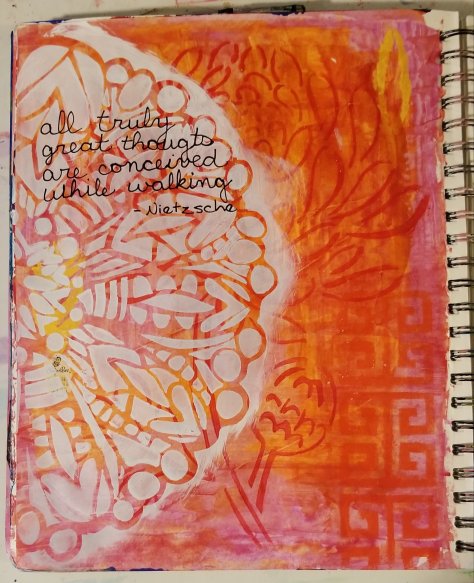 all truly
great thougts
are conceived
while walking
- Nietzsche